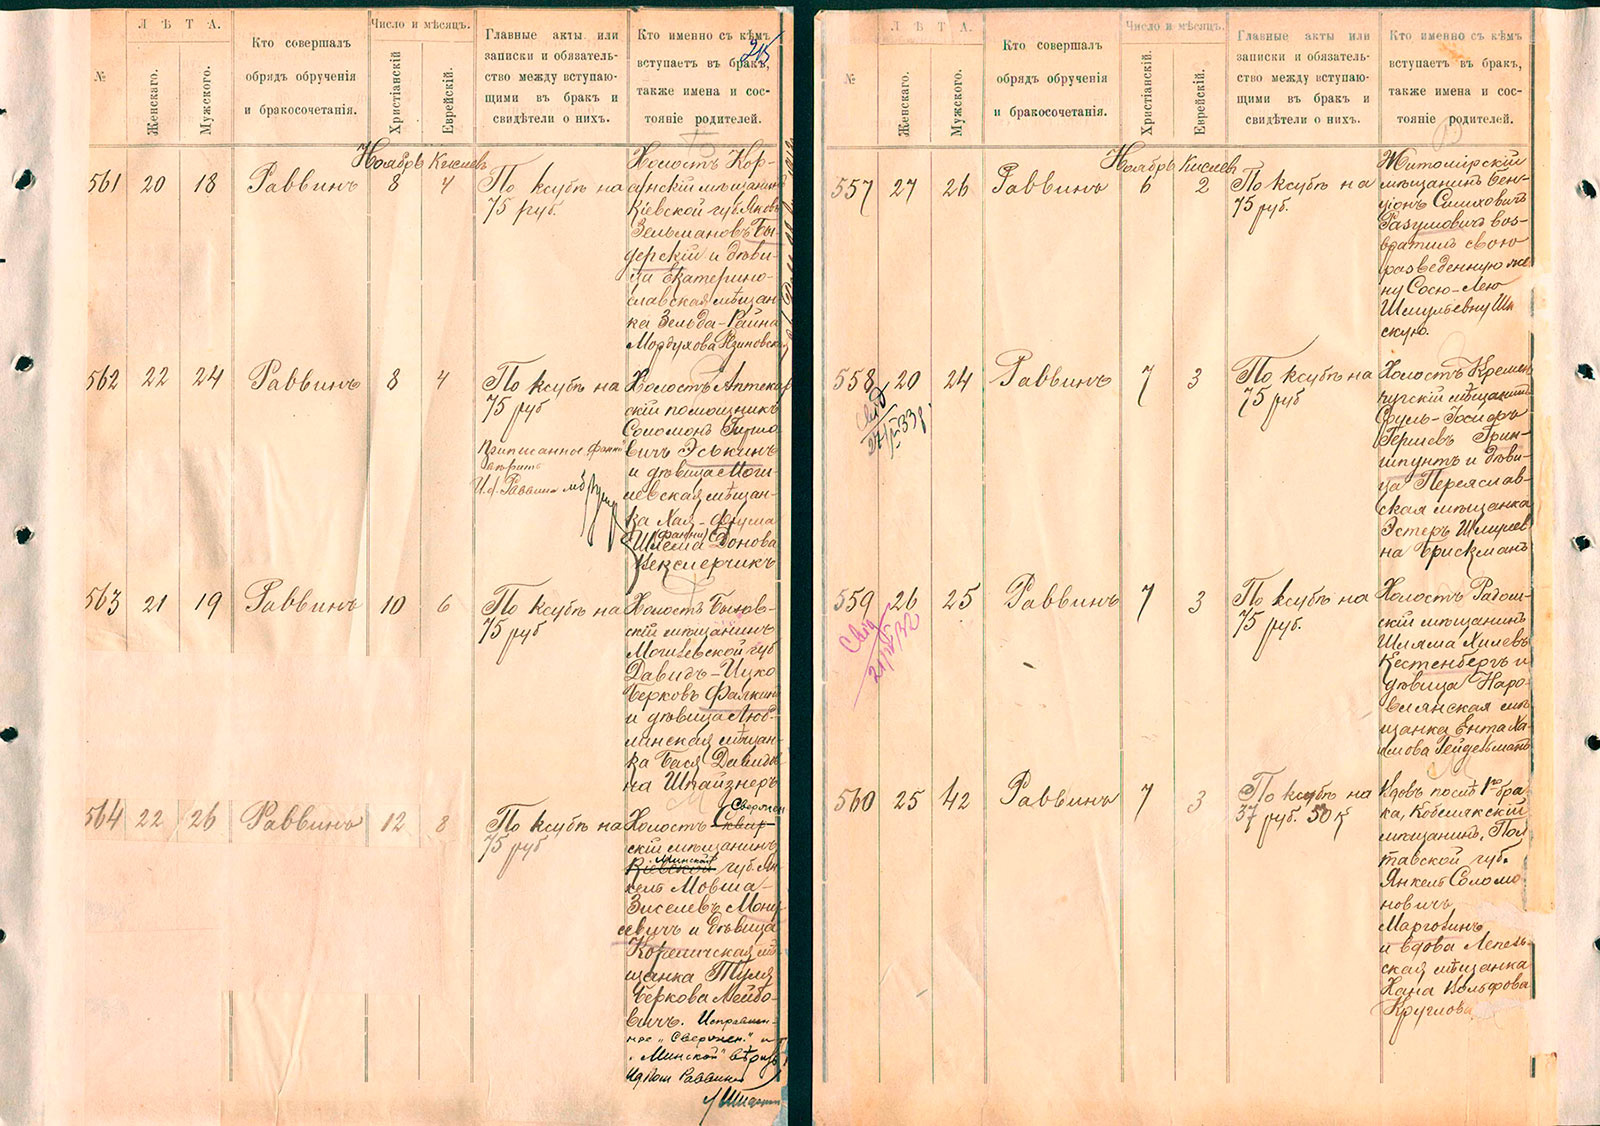 Л Ѣ Т А.
Число и мѣсяцъ.
№
Женскаго.
Мужского.
Кто совершалъ
обрядъ обрученія
и бракосочетанія.
Христіанскій
Еврейскій.
Главные акты или
записки и обязатель-
ство между вступаю-
щими въ бракъ и
свидѣтели о нихъ.
Кто именно съ кѣмъ
вступаетъ въ бракъ,
также имена и сос-
тояніе родителей.
Ноябрь Кислевъ
561 20 18 Раввинъ 8 4
По ксубѣ на
75 руб.
Холостъ Кор-
Кіевской губ. Яковъ
Зельмановъ Бы-
дерскій и дѣви-
ца Екатерино-
славская мѣщан-
ка Зельда-Райна
Мордухова
562 22 24 Раввинъ 8 4
По ксубѣ на
75 руб
И.д. Раввина
Холостъ Аптекар
скій помощникъ
Соломонъ
вичъ Эськинъ
и дѣвица Моги-
левская мѣщан-
ка Хая-Фрума
(Фанни)
Шлема Донова
Векслерчикъ
563 21 19 Раввинъ 10 6
По ксубѣ на
75 руб
Холостъ Быхов-
скій мѣщанинъ
Могилевской губ
Давидъ-Ицко
Берковъ Файкин
и дѣвица Люб-
линская мѣщан-
ка Бася Давидов
на Штайзнеръ
564 22 26 Раввинъ 12 8
По ксубѣ на
75 руб
Холостъ Свержен
Сквир-
скій мѣщанинъ
Минской
Кіевской губ. Ян
кель Мовша-
Зиселевъ Мону
севичъ и дѣвица
Кореличская мѣ
щанка Туля
Беркова Лейбо-
вичъ. Исправлен-
ное „Свержен." и
„Минской" вѣрно
Ид Пом Раввина
Л Ѣ Т А.
Число и мѣсяцъ.
№
Женскаго.
Мужского.
Кто совершалъ
обрядъ обрученія
и бракосочетанія.
Христіанскій.
Еврейскій.
Главные акты или
записки и обязатель-
ство между вступаю-
щими въ бракъ и
свидѣтели о нихъ.
Кто именно съ кѣмъ
вступаетъ въ бракъ,
также имена и сос-
тояніе родителей.
Ноябрь Кислев
557 27 26 Раввинъ 6 2
По ксубѣ на
75 руб.
Житомірскій
мѣщанинъ Бен-
ціонъ Симховичъ
Разумовичъ воз-
вратилъ свою
разведенную же
ну Сосю-Лею
Шмульевну Шп
скую.
558 20 24 Раввинъ 7 3
По ксубѣ на
75 руб
Холостъ Кремен
чугскій мѣщанинъ
Сруль-Іосифъ
Гершевъ Грин-
шпунтъ и дѣви-
ца Переяслав-
ская мѣщанка
Эстеръ Шмулев
на Брискманъ
559 26 25 Раввинъ 7 3
По ксубѣ на
75 руб.
Холостъ Радом-
скій мѣщанинъ
Шляма Хилевъ
Кестенбергъ и
дѣвица Наро-
влянская мѣ
щанка Ента Ха-
имова Гейдельманъ
560 25 42 Раввинъ 7 3
По ксубѣ на
37 руб. 50 к
Вдовъ послѣ 1го бра-
ка, Кобелякскій
мѣщанинъ, Пол
тавской губ.
Янкель Соломо
новичъ
Марголинъ
и вдова Лепель-
ская мѣщанка
Хана Вольфова
Круглова